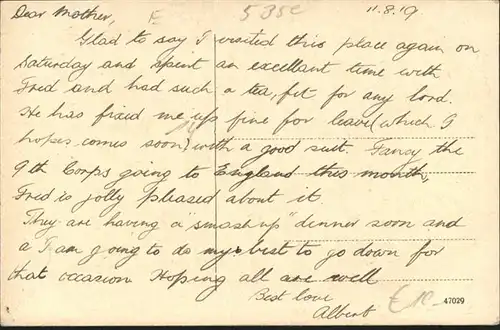 Dear Mother, E 53se 11.8.19
Glad to say I visited this place again on
Saturday and spent an excellent time with
Fred and had such a tea, fit for any lord.
He has fixed me up fine for leave (which I
hopes comes soon) with a good suit. Fancy the
9th Corps going to England this month,
Fred is jolly pleased about it
They are having a "smash up" dinner soon and
a I am going to do my best to go down for
that occasion. Hoping all are well
Best love
Albert €10_ 47029